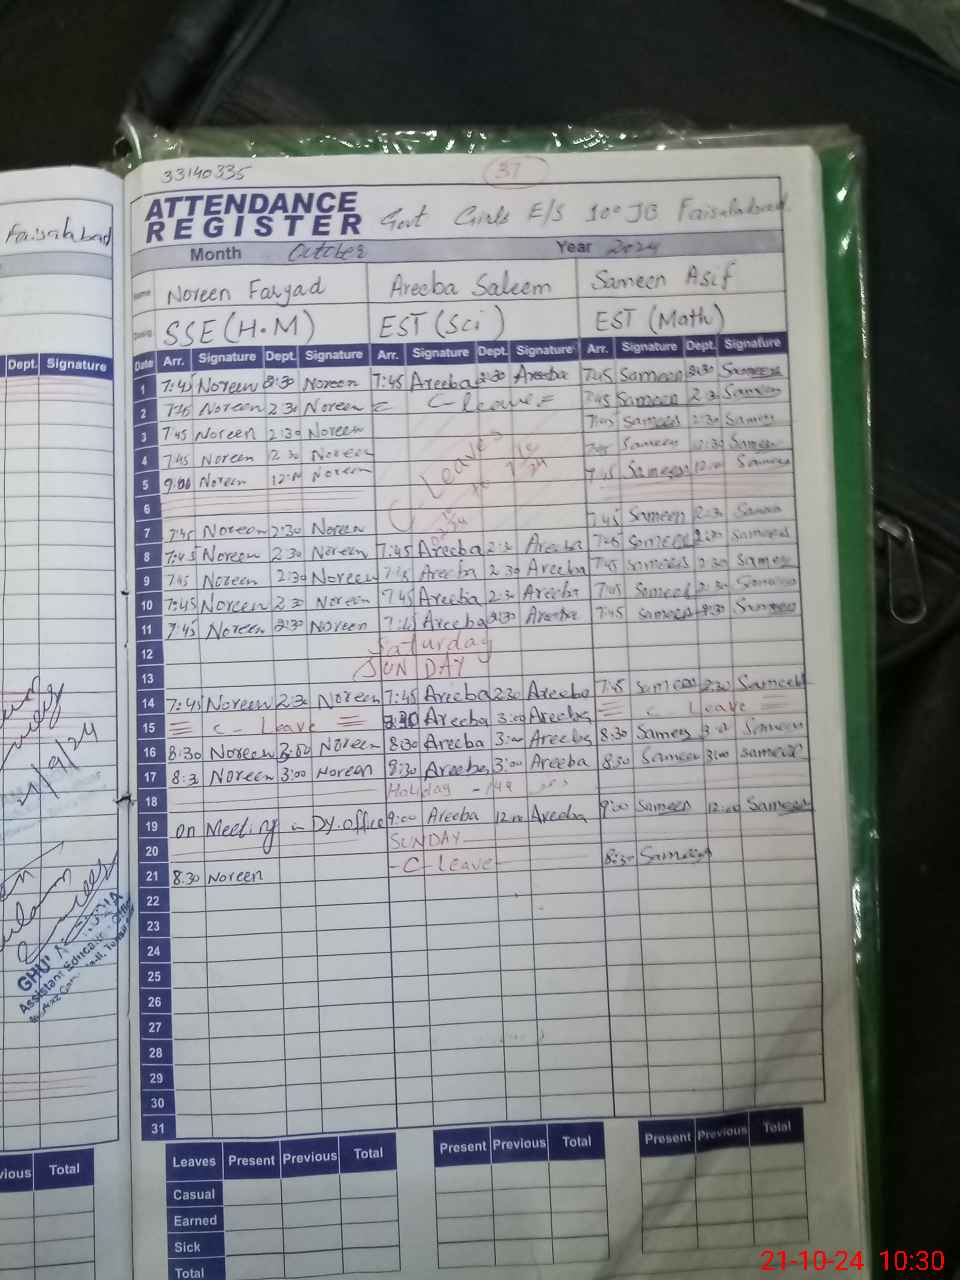 33140335
37
ATTENDANCE REGISTER Govt Girls E/S 100 JB Faisalabad.
Faisalabad
Month October Year 2024
Name Noreen Faryad Areeba Saleem Sameen Asif
SSE (H.M) EST (Sci) EST (Math)
Dept. Signature
Date Arr. Signature Dept. Signature Arr. Signature Dept. Signature Arr. Signature Dept. Signature
1 7:45 Noreen 2:30 Noreen 7:45 Areeba 2:30 Areeba 7:45 Sameen 2:30 Sameen
2 7:45 Noreen 2:30 Noreen C-leave 7:45 Sameen 2:30 Sameen
3 7:45 Noreen 2:30 Noreen 7:45 Sameen 2:30 Sameen
4 7:45 Noreen 2:30 Noreen C Leaves 7:45 Sameen 12:30 Sameen
5 9:00 Noreen 12:00 Noreen 7:45 Sameen 12:00 Sameen
6
7 7:45 Noreen 2:30 Noreen 7:45 Sameen 2:30 Sameen
8 7:45 Noreen 2:30 Noreen 7:45 Areeba 2:30 Areeba 7:45 Sameen 2:30 Sameen
9 7:45 Noreen 2:30 Noreen 7:45 Areeba 2:30 Areeba 7:45 Sameen 2:30 Sameen
10 7:45 Noreen 2:30 Noreen 7:45 Areeba 2:30 Areeba 7:45 Sameen 2:30 Sameen
11 7:45 Noreen 2:30 Noreen 7:45 Areeba 2:30 Areeba 7:45 Sameen 2:30 Sameen
12 Saturday
13 SUNDAY
14 7:45 Noreen 2:30 Noreen 7:45 Areeba 2:30 Areeba 7:45 Sameen 2:30 Sameen
15 C-Leave Areeba 3:00 Areeba C-Leave
16 8:30 Noreen 3:00 Noreen 8:30 Areeba 3:00 Areeba 8:30 Sameen 3:00 Sameen
17 8:30 Noreen 3:00 Noreen 8:30 Areeba 3:00 Areeba 8:30 Sameen 3:00 Sameen
18 Holiday
19 on Meeting in Dy. office 9:00 Areeba 12:00 Areeba 9:00 Sameen 12:00 Sameen
20 SUNDAY
21 8:30 Noreen -C-Leave- 8:30 Sameen
22
23
24
25
26
27
28
29
30
31
Leaves Present Previous Total Present Previous Total Present Previous Total
Casual
Earned
Sick
Total
Total
Assistant Education
21-10-24 10:30